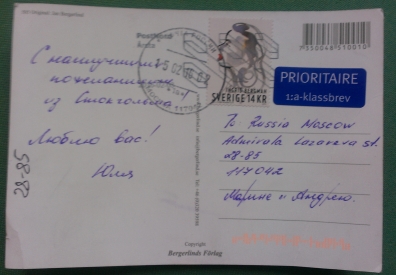 С наилучшими
пожеланиями
из Стокгольма
Люблю вас!
Юлия
28-85
INGRID BERGMAN
SVERIGE 14 KR
7350048510010
PRIORITAIRE
1:a-klassbrev
To Russia Moscow
Admirala Lazareva st.
28-85
117042
Марине и Андрею.
Copyright
Bergerlinds Förlag